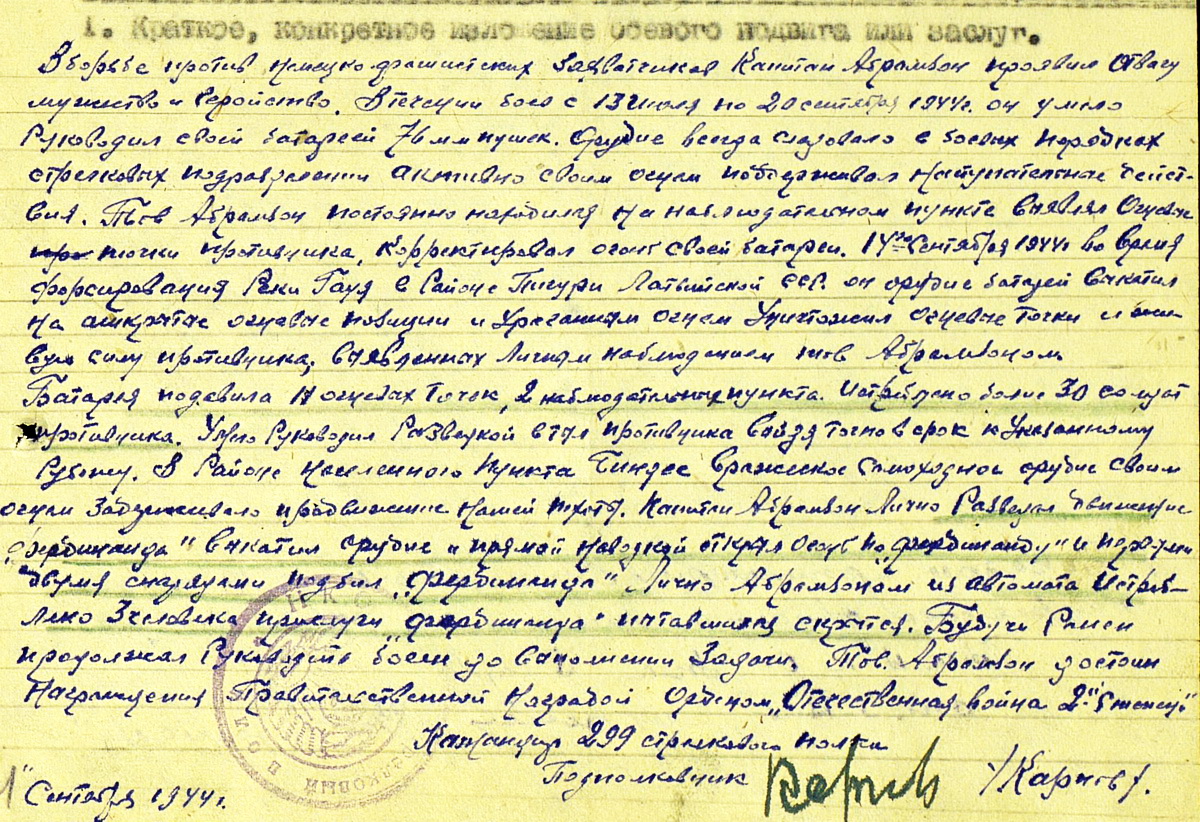 1. Краткое, конкретное изложение боевого подвига или заслуг.
В борьбе против немецко фашистских захватчиков Капитан Абрамзон проявил отвагу
мужество и геройство. В течении боев с 13 июля по 20 сентября 1944г. он умело
руководил своей батареей 76 мм пушек. Орудие всегда следовало в боевых порядках
стрелковых подразделении активно своим огнем поддерживал наступательные дейст-
вия. Тов Абрамзон постоянно находился на наблюдательном пункте выявлял огневые
точки противника, корректировал огонь своей батареи. 14 сентября 1944г во время
форсирования реки Гауя в районе Латвийской ССР. он орудие батареи выкатил
на открытые огневые позиции и ураганным огнем уничтожил огневые точки и жи-
вую силу противника, выявленных личным наблюдением тов Абрамзоном
Батарея подавила 11 огневых точек, 2 наблюдательных пункта. Истреблено более 30 солдат
противника. Умело руководил разведкой в тыл противника выйдя точно в срок к указанному
рубежу. В районе населенного пункта вражеское самоходное орудие своим
огнем задерживало продвижение нашей пехоты. Капитан Абрамзон лично разведал движение
„фердинанда" выкатил орудие и прямой наводкой открыл огонь по „фердинанду" и первыми
двумя снарядами подбил „фердинанда" Лично Абрамзоном из автомата истреб-
лено 3 человека прислуги „фердинанда" пытавшихся скрытся. Будучи ранен
продолжал руководить боем до выполнении задачи. Тов. Абрамзон достоин
награждения Правительственной наградой Орденом „Отечественная война 2й степени"
Командир 299 стрелкового полка
Подполковник /Карпов/.
Сентября 1944г.